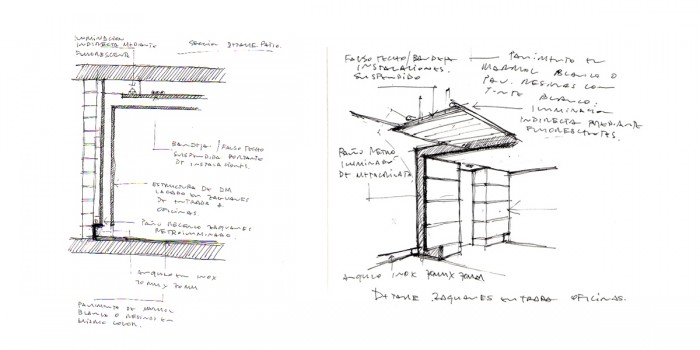 ILUMINACION
INDIRECTA MEDIANTE
FLUORESCENTE
SECCION DETALLE PAÑO.
BANDEJA / FALSO TECHO
SUSPENDIDA PORTANTE
DE INSTALACIONES.
ESTRUCTURA DE DM
LACADO EN ZAGUANES
DE ENTRADA A
OFICINAS.
PAÑO RECERCO ZAGUANES
RETROILUMINADO.
ANGULO EN INOX
70MM X 70MM
PAVIMENTO DE MARMOL
BLANCO O RESINAS EN
MISMO COLOR.
FALSO TECHO/BANDEJA
INSTALACIONES.
SUSPENDIDO
PAVIMENTO EN
MARMOL BLANCO O
PAV. RESINAS CON
TINTE BLANCO.
ILUMINACION
INDIRECTA MEDIANTE
FLUORESCENTES.
PAÑO RETRO
ILUMINADO
DE METACRILATO
ANGULO INOX 70MM X 70MM
DETALLE ZAGUANES ENTRADA OFICINAS.